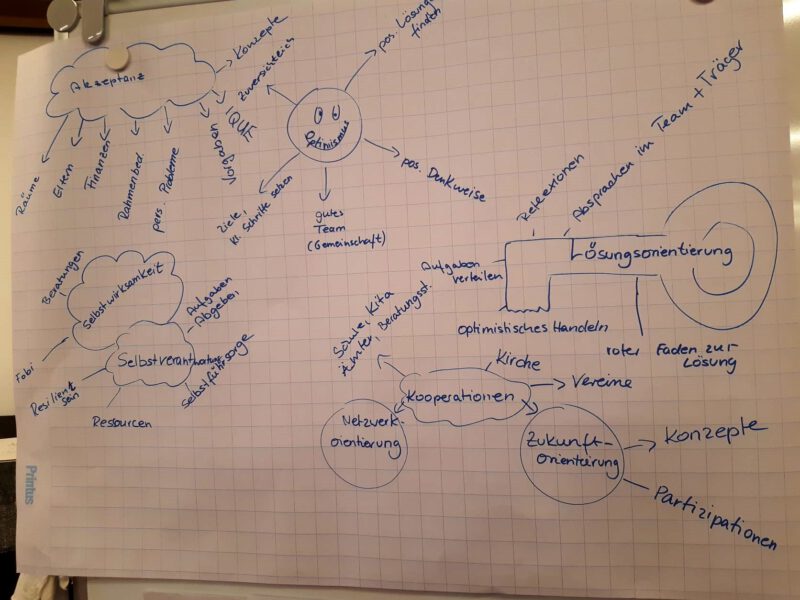 Akzeptanz
Konzepte
Räume
Eltern
Finanzen
Rahmenbed.
pers. Probleme
Vorgaben
IQUE
zuversichtlich
pos. Lösung
finden
Optimismus
pos. Denkweise
Ziele,
kl. Schritte setzen
gutes
Team
(Gemeinschaft)
Reflektionen
Absprachen im Team + Träger
Aufgaben
verteilen
Lösungsorientierung
optimistisches Handeln
roter Faden zur
Lösung
Beratungen
Selbstwirksamkeit
Fobi
Aufgaben
Abgeben
Selbstverantwortung
Selbstfürsorge
Resilient
sein
Ressourcen
Schule, Kita
Ämter, Beratungsst.
Kirche
Kooperationen
Vereine
Netzwerk-
orientierung
Zukunft-
orientierung
Konzepte
Partizipationen
Printus